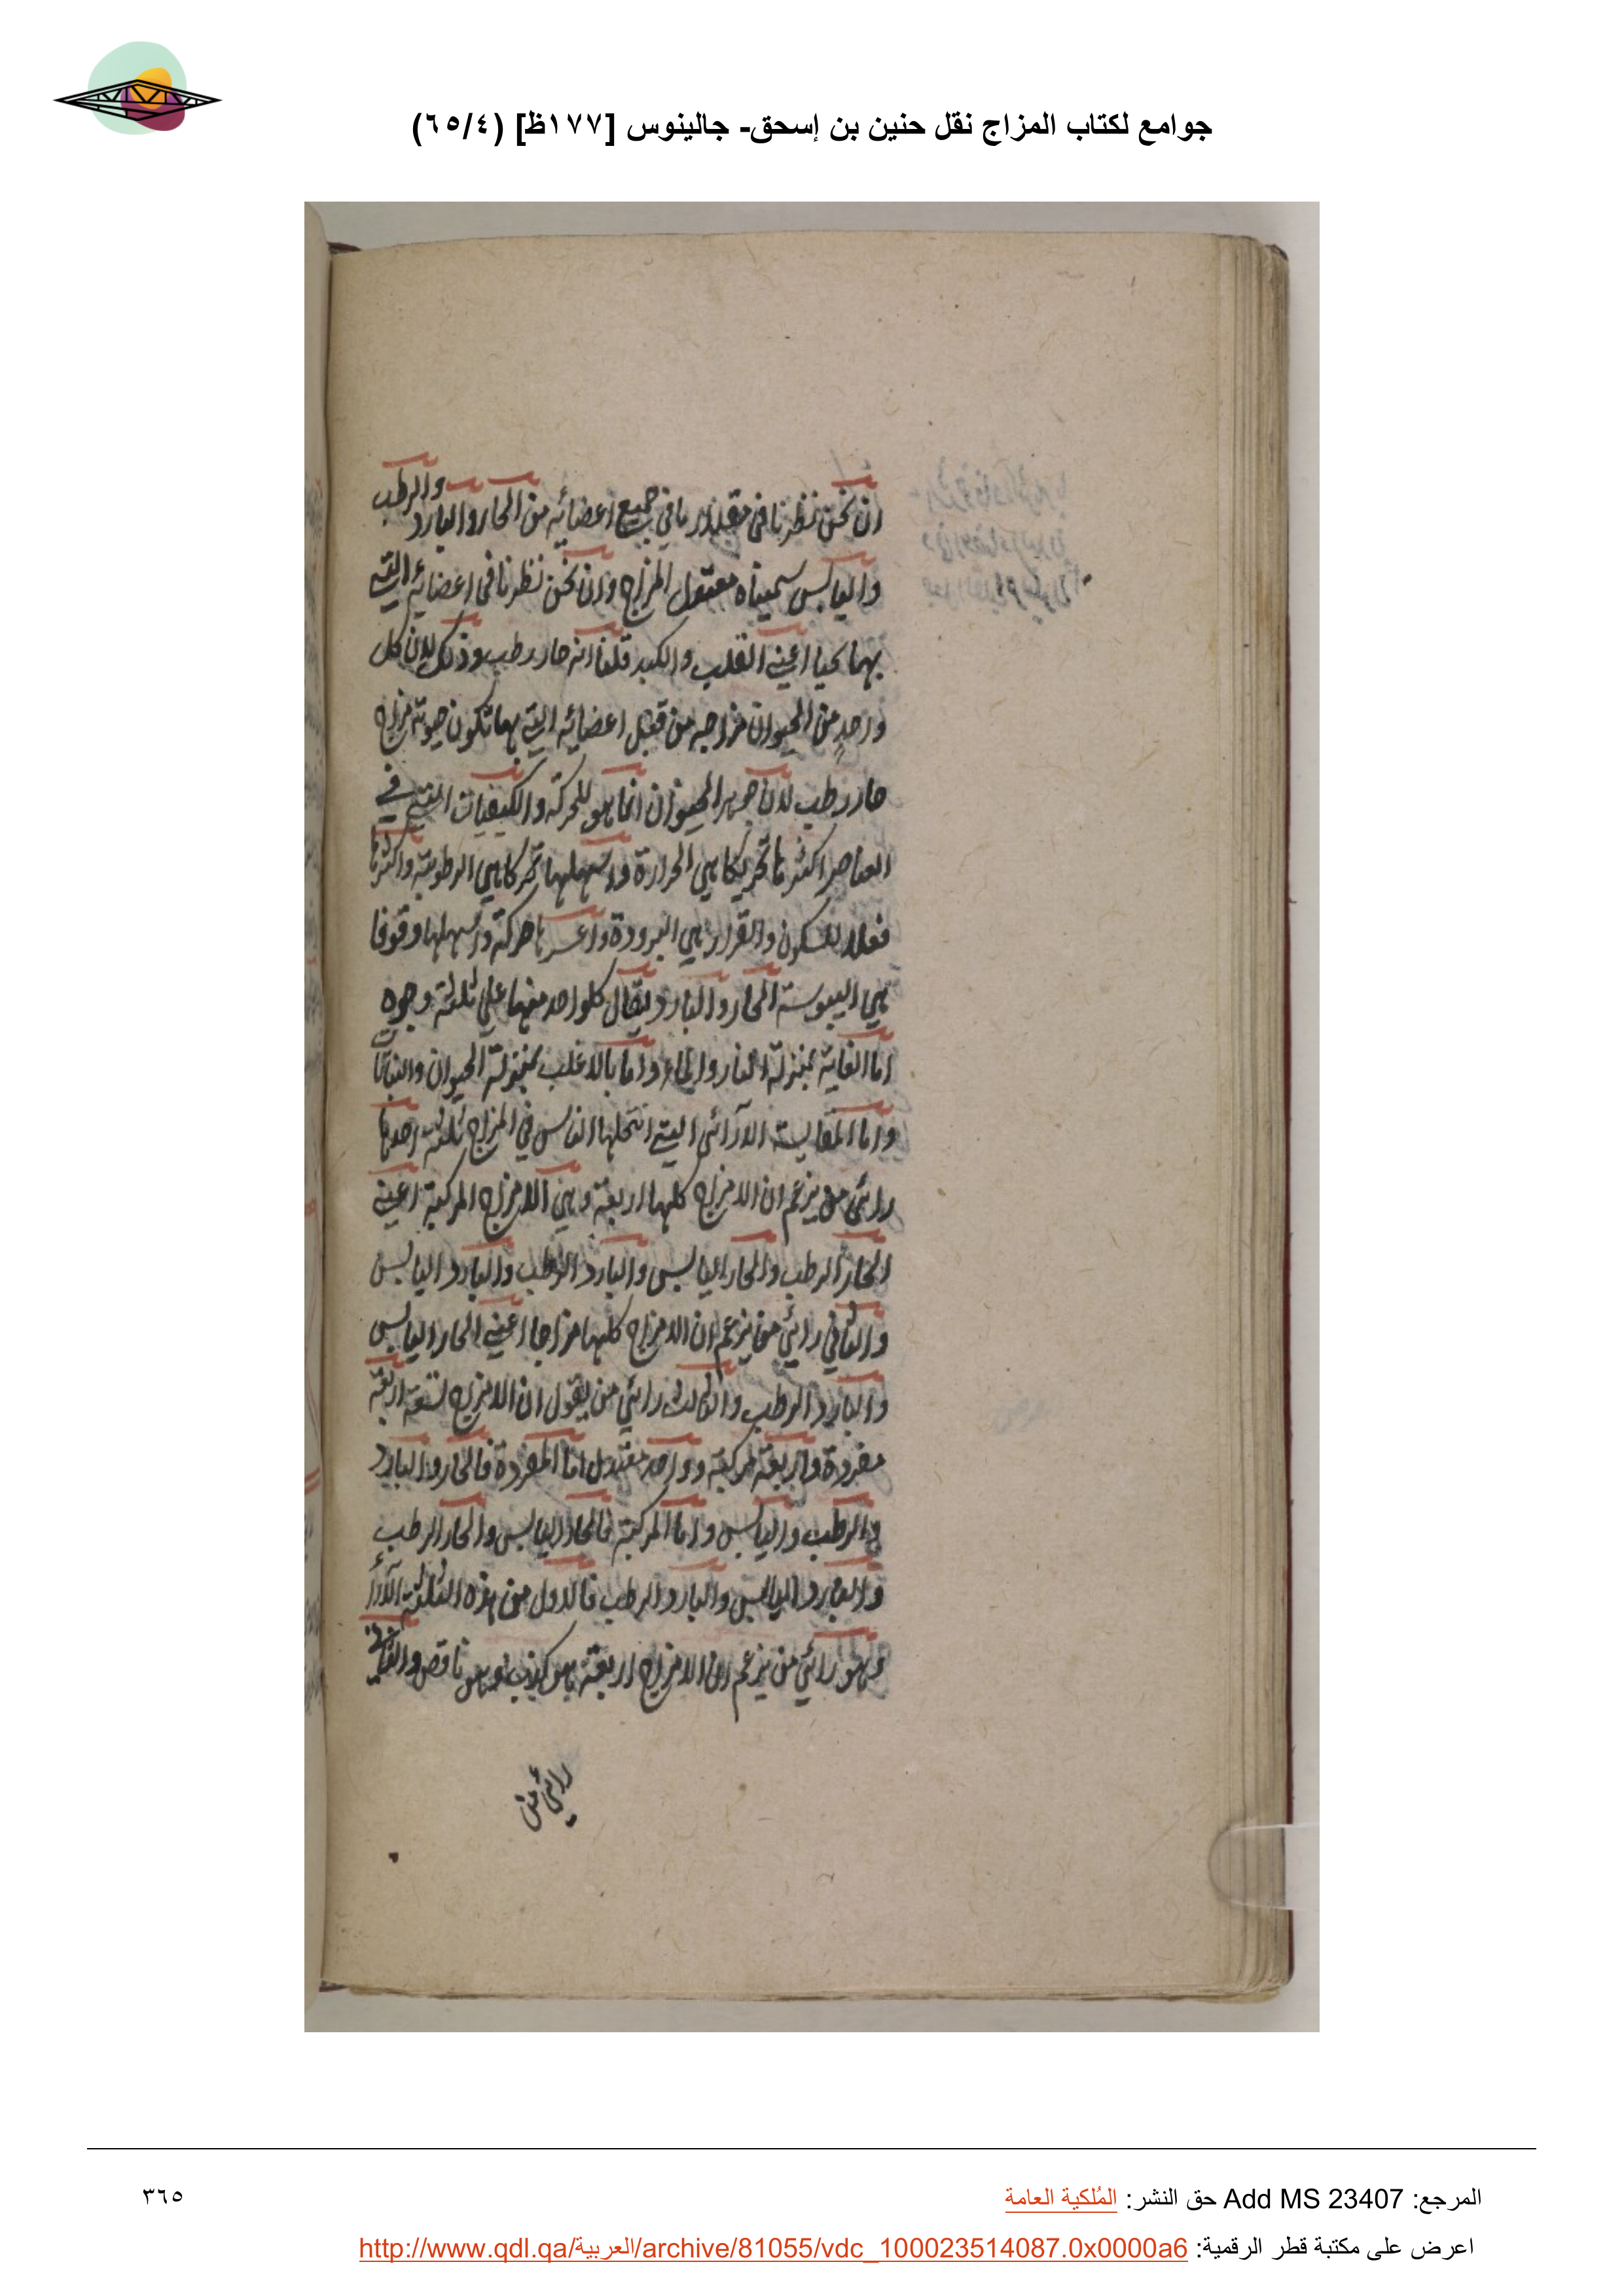 جوامع لكتاب المزاج نقل حنين بن إسحق- جالينوس [١٧٧ظ] (٦٥/٤)
ان نحن نظرنا فى مقدار ما في جميع اعضائه من الحار والبارد والرطب
واليابس سميناه معتدل المزاج وان نحن نظرنا فى اعضائه التي
بها يحيا اعني القلب والكبد قلنا انه حار رطب وذلك لان كل
واحدٍ من الحيوان مزاجه من قبل اعضائه التي بها تكون حيوته مزاج
حار رطب لان جوهر الحيوان انما هو للحركة والكيفيات التي في
العناصر اكثرها تحريكا هي الحرارة واسهلها تحركا هي الرطوبة واكثرها
فعلا للسكون والقرار هي البرودة واعسرها حركة واسهلها وقوفا
هي اليبوسة الحار والبارد يقال كلواحد منهما على ثلثة وجوه
اما الغاية بمنزلة النار والماء واما بالاغلب بمنزلة الحيوان والنبات
واما المقايسة الآرائى التي انتحلها الناس في المزاج ثلثة احدها
رائى من يزعم ان الامزاج كلها اربعة وهي الامزاج المركبة اعني
الحار الرطب والحار اليابس والبارد الرطب والبارد اليابس
والثاني رائي من يزعم ان الامزاج كلها مزاجا اعني الحار اليابس
والبارد الرطب والثالث رائي من يقول ان الامزاج تسعة اربعة
مفردة واربعة مركبة وواحد معتدل اما المفردة فالحار والبارد
والرطب واليابس واما المركبة فالحار اليابس والحار الرطب
والبارد اليابس والبارد الرطب فالاول من هذه الثلثة الآراء
وهو رائي من يزعم ان الامزاج اربعة هو كذب وهو ناقص والثاني
رائي من
المرجع: Add MS 23407 حق النشر: المُلكية العامة
٣٦٥
اعرض على مكتبة قطر الرقمية: http://www.qdl.qa/العربية/archive/81055/vdc_100023514087.0x0000a6